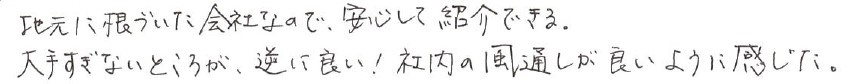 地元に根づいた会社なので、安心して紹介できる。
大手すぎないところが、逆に良い！社内の風通しが良いように感じた。